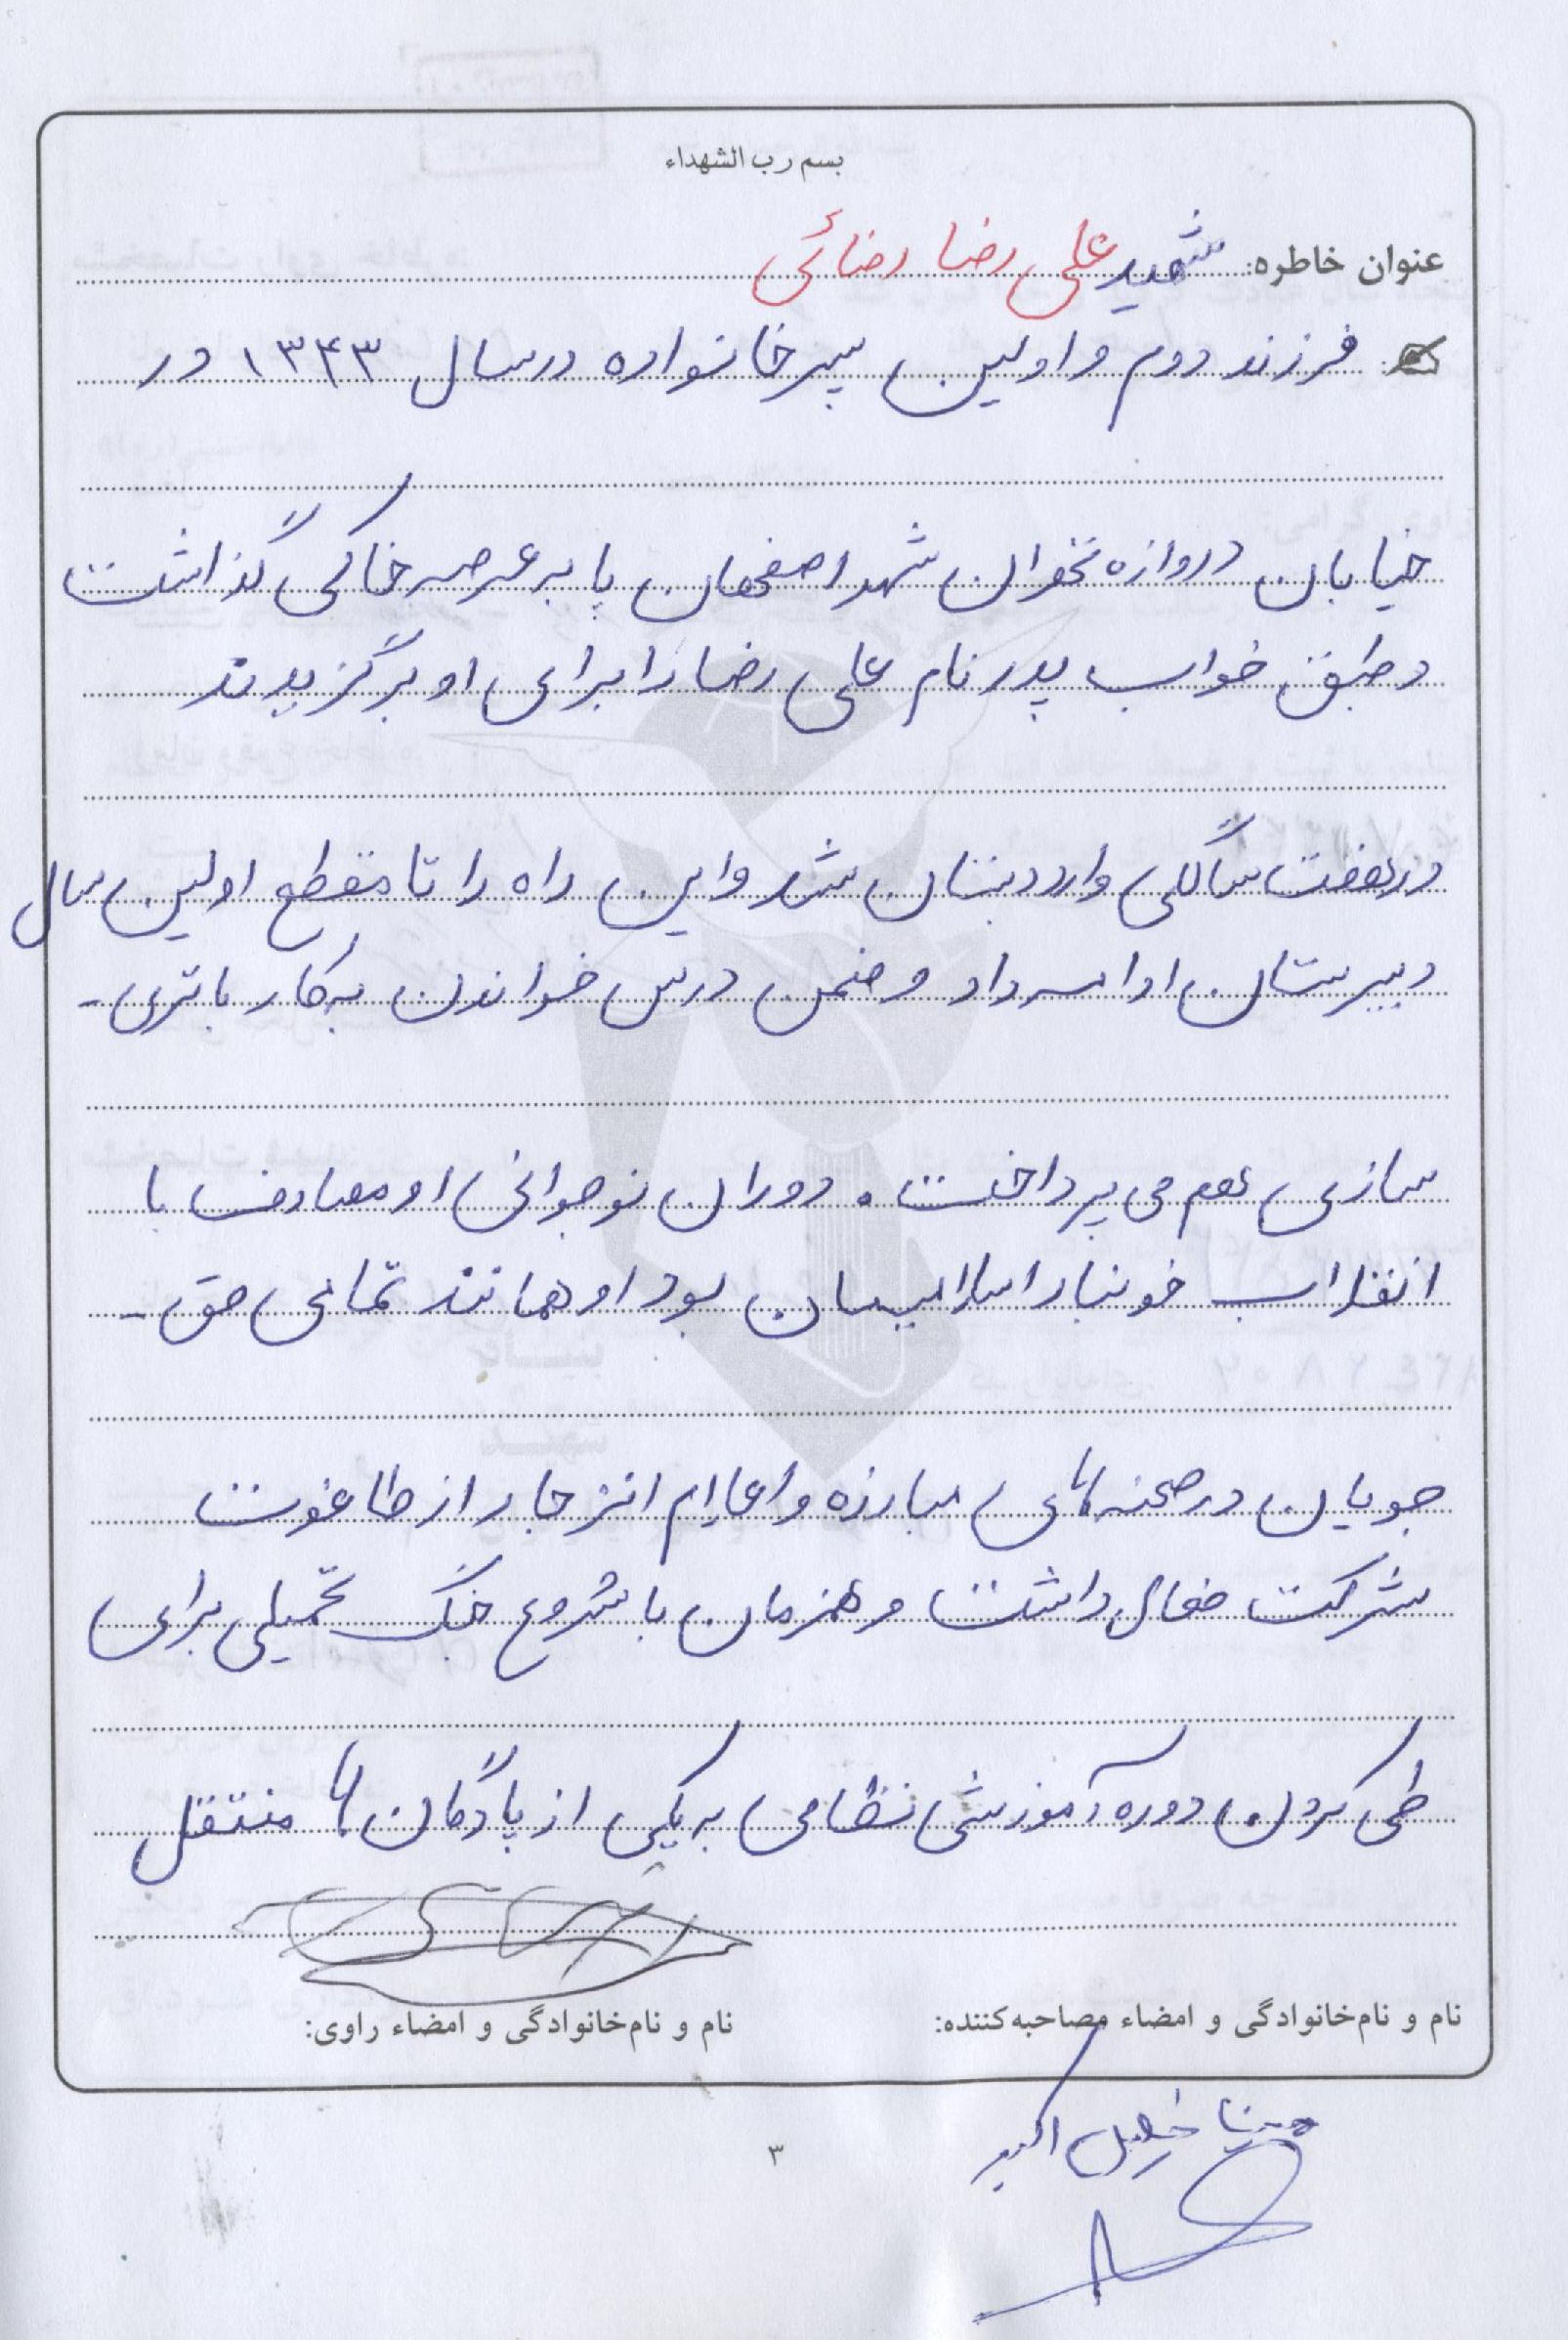 بسم رب الشهداء
عنوان خاطره: شهید علی رضا رضائی
فرزند دوم و اولین پسر خانواده در سال ۱۳۴۳ در
خیابان دروازه تخوان شهر اصفهان پا به عرصه خاکی گذاشت
و طبق خواب پدر نام علی رضا را برای او برگزیدند
در هفت سالگی وارد دبستان شد و این راه را تا مقطع اولین سال
دبیرستان ادامه داد و ضمن درس خواندن به کار باتری-
سازی هم می پرداخت. دوران نوجوانی او مصادف با
انقلاب خونبار اسلامیمان بود او همانند تمامی حق-
جویان در صحنه های مبارزه و اعلام انزجار از طاغوت
شرکت فعال داشت و همزمان با شروع جنگ تحمیلی برای
طی کردن دوره آموزشی نظامی به یکی از پادگان ها منتقل
نام و نام‌خانوادگی و امضاء مصاحبه‌کننده: نام و نام‌خانوادگی و امضاء راوی:
اکبر
۳